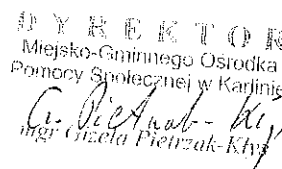 DYREKTOR
Miejsko-Gminnego Ośrodka
Pomocy Społecznej w Karlinie
mgr Gizela Pietrzak-Kły